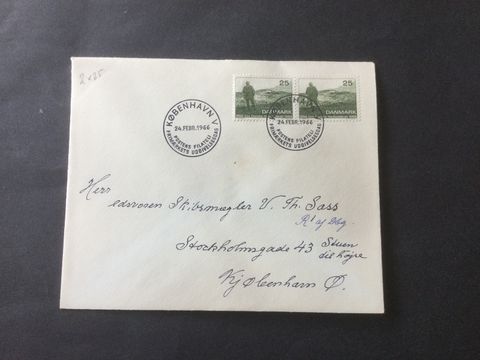 2x25
25 25
DANMARK DANMARK
KØBENHAVN V
24.FEBR.1966
POSTENS FILATELI
FRIMÆRKETS UDGIVELSESDAG
KØBENHAVN V
24.FEBR.1966
POSTENS FILATELI
FRIMÆRKETS UDGIVELSESDAG
Herr
edsvoren Skibsmægler V. Th. Sass
R¹ af Dbg.
Stockholmsgade 43 Stuen
til højre
Kjøbenhavn Ø.